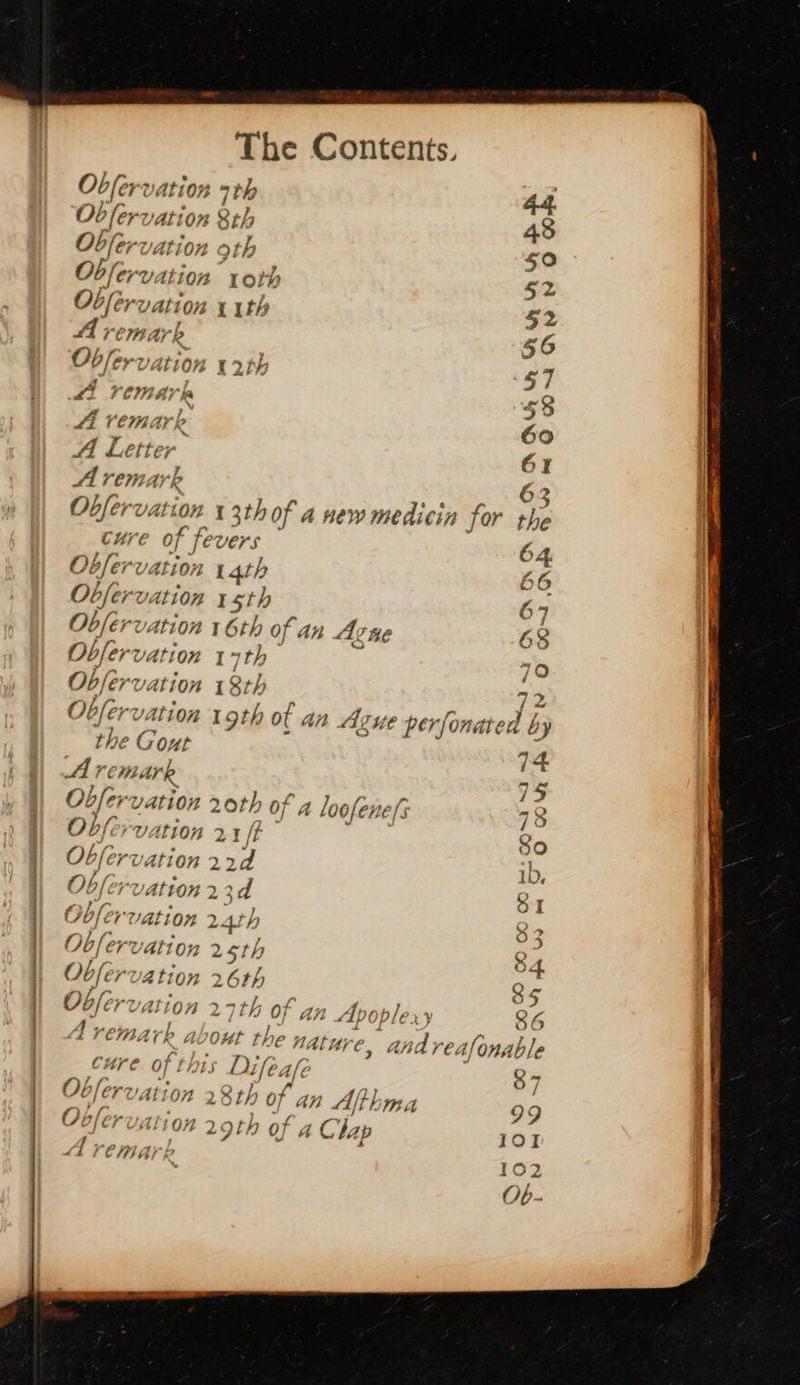 The Contents.
Obſervation 7th 44
Obſervation 8th 48
Obſervation 9th 50
Obſervation 10th 52
Obſervation 11th 52
A remark 56
Obſervation 12th 57
A remark 58
A remark 60
A Letter 61
A remark 63
Obſervation 13th of a new medicin for the
cure of fevers 64
Obſervation 14th 66
Obſervation 15th 67
Obſervation 16th of an Ague 68
Obſervation 17th 70
Obſervation 18th 72
Obſervation 19th of an Ague perſonated by
the Gout 74
A remark 75
Obſervation 20th of a looſeneſs 78
Obſervation 21ſt 80
Obſervation 22d ib.
Obſervation 23d 81
Obſervation 24th 83
Obſervation 25th 84
Obſervation 26th 85
Obſervation 27th of an Apoplexy 86
A remark about the nature, and reaſonable
cure of this Diſeaſe 87
Obſervation 28th of an Aſthma 99
Obſervation 29th of a Clap 101
A remark 102
Ob-